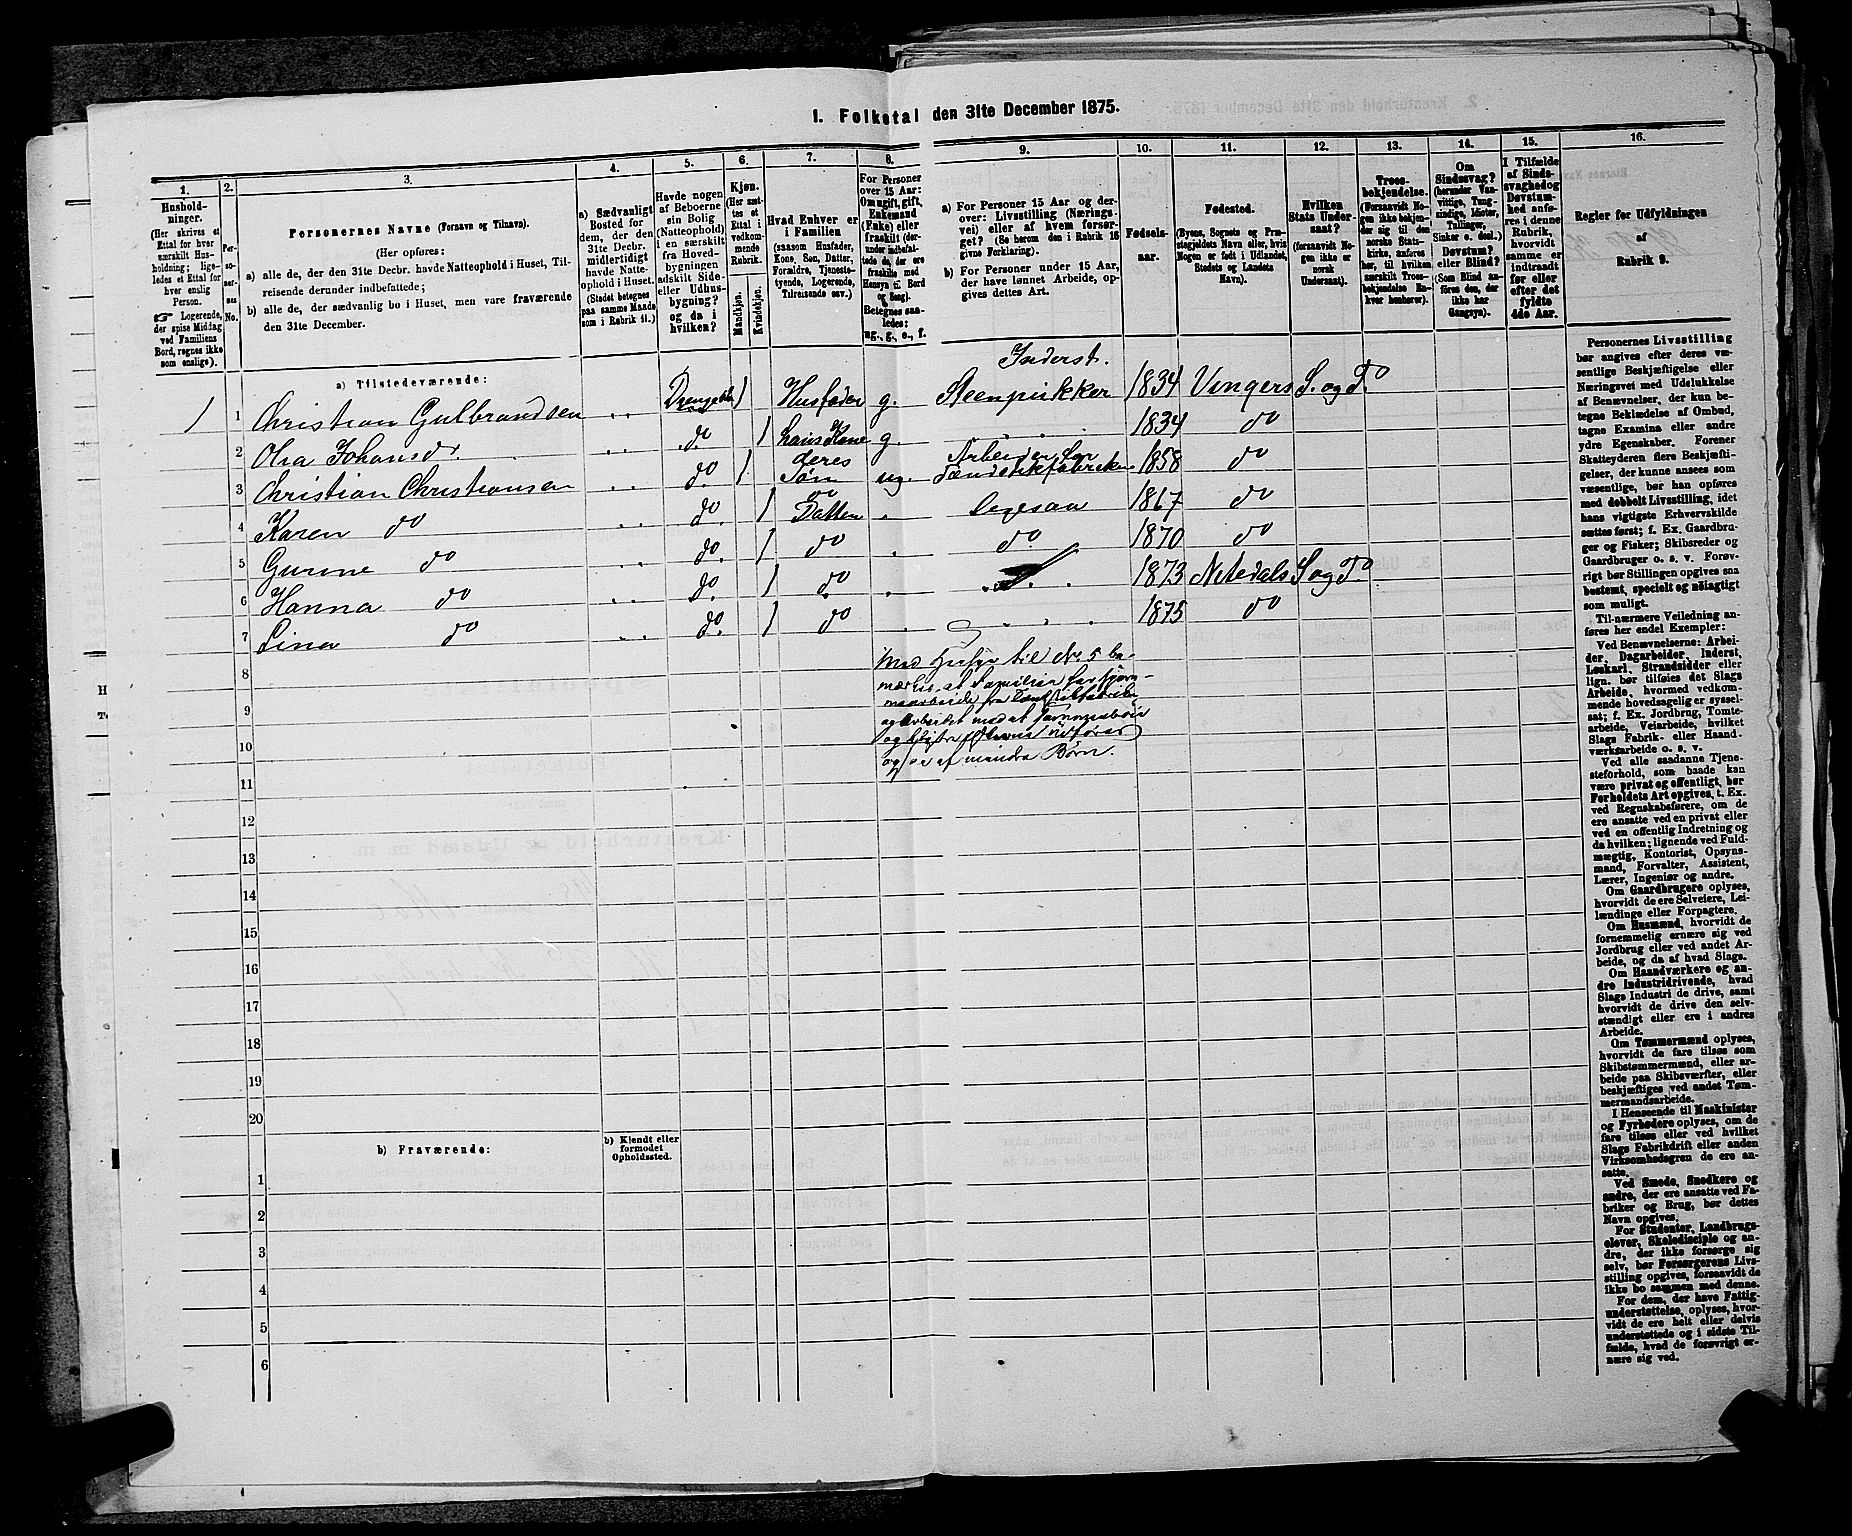 1. Folketal den 31te December 1875.
1.
Hushold-
ninger.
(Her skrives et
Ettal for hver
særskilt Hus-
holdning; lige-
ledes et Ettal for
hver enslig
Person.
☞ Logerende,
der spise Middag
ved Familiens
Bord, regnes ikke
som enslige).
2.
Per-
so-
ner-
nes
No.
3.
Personernes Navne (Fornavn og Tilnavn).
(Her opføres:
a) alle de, der den 31te Decbr. havde Natteophold i Huset, Til-
reisende derunder indbefattede;
b) alle de, der sædvanlig bo i Huset, men vare fraværende
den 31te December.
4.
a) Sædvanligt
Bosted for
dem, der den
31te Decbr.
midlertidigt
havde Natte-
ophold i Huset.
(Stedet betegnes
paa samme Maade
som i Rubrik 11.)
5.
Havde nogen
af Beboerne
sin Bolig
(Natteophold)
i en særskilt
fra Hoved-
bygningen
adskilt Side-
eller Udhus-
bygning?
og da i
hvilken?
6.
Kjøn.
(Her sæt-
tes et
Ettal i
vedkom-
mende
Rubrik.
Mandkjøn.
Kvindekjøn.
7.
Hvad Enhver er
i Familien
(saasom Husfader,
Kone, Søn, Datter,
Forældre, Tjeneste-
tyende, Logerende,
Tilreisende osv.)
8.
For Personer
over 15 Aar:
Om ugift, gift,
Enkemand
(Enke) eller
fraskilt (der-
under indbefat-
tede de, der ere
fraskilte med
Hensyn til Bord
og Seng).
Betegnes saa-
ledes:
ug., g., e., f.
9.
a) For Personer 15 Aar og der-
over: Livsstilling (Nærings-
vei) eller af hvem forsør-
get? (Se herom den i Rubrik 16
givne Forklaring).
b) For Personer under 15 Aar,
der have lønnet Arbeide, op-
gives dettes Art.
10.
Fødsels-
aar.
11.
Fødested.
(Byens, Sognets og Præ-
stegjeldets Navn eller, hvis
Nogen er født i Udlandet,
Stedets og Landets
Navn).
12.
Hvilken
Stats Under-
saat?
(forsaavidt No-
gen ikke er
norsk
Undersaat).
13.
Troes-
bekjendelse.
(Forsaavidt No-
gen ikke bekjen-
der sig til den
norske Stats-
kirke, anføres
her, til hvilken
særskilt Troes-
bekjendelse En-
hver henhører).
14.
Om
Sindssvag?
(herunder Van-
vittige, Tung-
sindige, Idioter,
Tullinger,
Sinker o. desl.)
Døvstum?
eller Blind?
(Som Blind an-
føres den, der
ikke har
Gangsyn).
15.
I Tilfælde
af Sinds-
svaghed og
Døvstum-
hed anfø-
res i denne
Rubrik,
hvorvidt
samme er
indtraadt
før eller
efter det
fyldte
4de Aar.
16.
Regler for Udfyldningen
af
Rubrik 9.
a) Tilstedeværende:
Inderst.
1 1 Christian Gulbrandsen .. 1 Husfader g. Steenpikker 1834 Vingers S. og P.
2 Olia Johansd. .. do. 1 hans Kone g. 1834 do
3 Christian Christiansen .. do. 1 deres Søn ug. Arbeider 1858 do
4 Karen do .. do. 1 Datter 1867 do
5 Gurine do .. do. 1 do do. 1870 do
6 Hanna do .. do. 1 do 1873 Nitedals S. og P.
7 Lina do .. do. 1 do 1875 do
til No. 5 be-
mærkes, at Familien har hjem-
og er af mindre Børn.
8
9
10
11
12
13
14
15
16
17
18
19
20
b) Fraværende:
b) Kjendt eller
formodet
Opholdssted.
1
2
3
4
5
6
Personernes Livsstilling
bør angives efter deres væ-
sentlige Beskjæftigelse eller
Næringsvei med Udelukkelse
af Benævnelser, der kun be-
tegne Beklædelse af Ombud,
tagne Examina eller andre
ydre Egenskaber. Forener
Skatteyderen flere Beskjæfti-
gelser, der kunne ansees som
væsentlige, bør han opføres
med dobbelt Livsstilling, idet
hans vigtigste Erhvervskilde
sættes først; f. Ex. Gaardbru-
ger og Fisker; Skibsreder og
Gaardbruger o. s. v. Forøv-
rigt bør Stillingen opgives saa
bestemt, specielt og nøiagtigt
som muligt.
Til nærmere Veiledning an-
føres her endel Exempler:
Ved Benævnelserne: Arbei-
der, Dagarbeider, Inderst,
Løskarl, Strandsidder eller
lign. bør tilføies det Slags
Arbeide, hvormed vedkom-
mende hovedsagelig er syssel-
sat; f. Ex. Jordbrug, Tomte-
arbeide, Veiarbeide, hvilket
Slags Fabrik- eller Haand-
værksarbeide o. s. v.
Ved alle saadanne Tjene-
steforhold, som baade kan
være privat og offentligt, bør
Forholdets Art opgives, t. Ex.
ved Regnskabsførere, om de
ere ansatte ved en privat eller
ved en offentlig Indretning og
da hvilken; lignende ved Fuld-
mægtig, Kontorist, Opsyns-
mand, Forvalter, Assistent,
Lærer, Ingeniør og andre.
Om Gaardbrugere oplyses,
hvorvidt de ere Selveiere, Lei-
lændinge eller Forpagtere.
Om Husmænd, hvorvidt de
fornemmelig ernære sig ved
Jordbrug eller ved andet Ar-
beide, og da af hvad Slags.
Om Haandværkere og an-
dre Industridrivende, hvad
Slags Industri de drive, samt
hvorvidt de drive den selv-
stændigt eller ere i andres
Arbeide.
Om Tømmermænd oplyses,
hvorvidt de fare tilsøs som
Skibstømmermænd, eller ar-
beide paa Skibsværfter, eller
beskjæftiges ved andet Tøm-
mermandsarbeide.
I Henseende til Maskinister
og Fyrbødere oplyses, om de
fare tilsøs eller ved hvilket
Slags Fabrikdrift eller anden
Virksomhedsgren de ere an-
satte.
Ved Smede, Snedkere og
andre, der ere ansatte ved Fa-
briker og Brug, bør dettes
Navn opgives.
For Studenter, Landbrugs-
elever, Skoledisciple og an-
dre, der ikke forsørge sig
selv, bør Forsørgerens Livs-
stilling opgives, forsaavidt de
ikke bo sammen med denne.
For dem, der have Fattig-
understøttelse, oplyses, hvor-
vidt de ere helt eller delvis
understøttede og i sidste Til-
fælde, hvad de forøvrigt er-
nære sig ved.